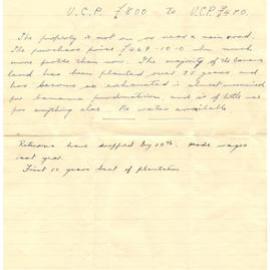 U.C.P. £800 to U.C.P. £650.
The property is not on or near a main road.
The purchase price £469-10-0 when much
more profit than now. The majority of the banana
land has been planted over 25 years and
has become so exhausted is almost
for banana production and is of little use
for anything else. No water available
Returns have dropped by made wages
last year.
First 10 years best of plantation